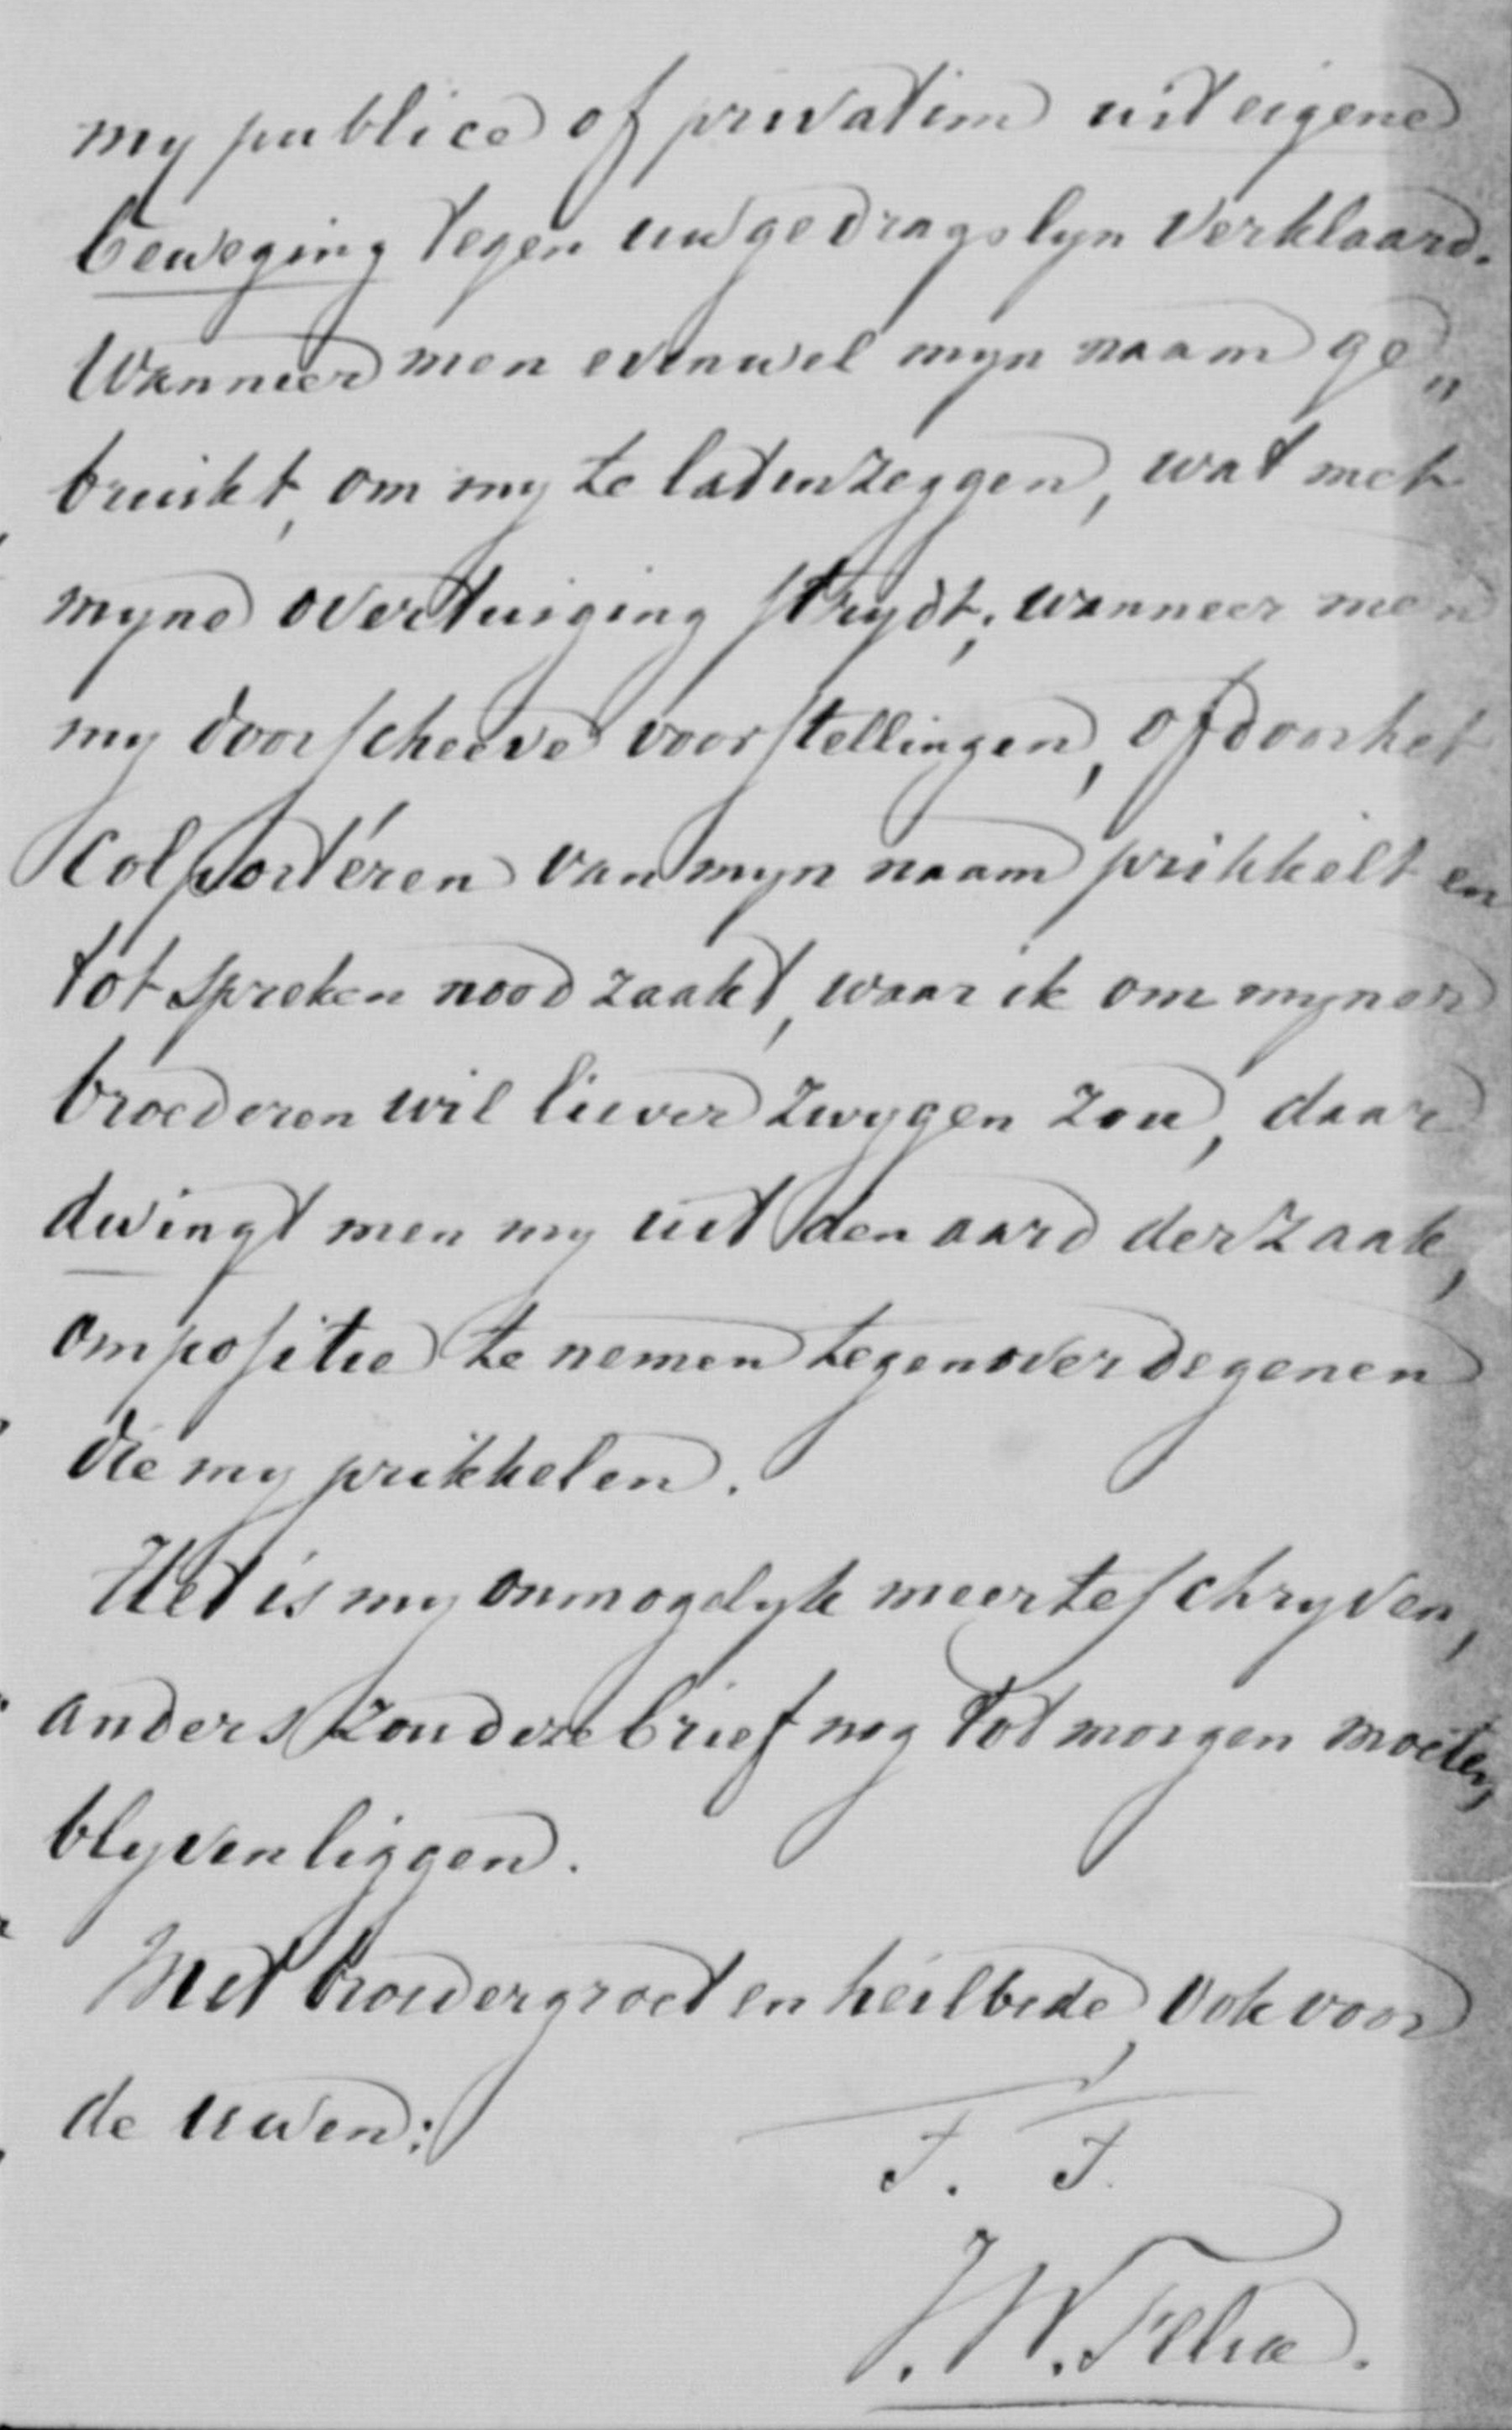 my publice of privatim uit eigene
beweging tegen uw gedragslyn verklaard.
Wanneer men evenwel myn naam ge„
bruikt, om my te laten zeggen, wat met
myne overtuiging strydt; wanneer men
my door scheeve voorstellingen, of door het
colportéren van myn naam prikkelt en
tot spreken noodzaakt, waar ik om myner
broederen wil liever zwygen zou, daar
dwingt men my uit den aard der zaak,
om positie te nemen tegenover degenen
die my prikkelen.
Het is my onmogelyk meer te schryven,
anders zou deze brief nog tot morgen moeten
blyven liggen.
Met broedergroet en heilbede, ook voor
de uwen:
T. T.
J. W. Felix.